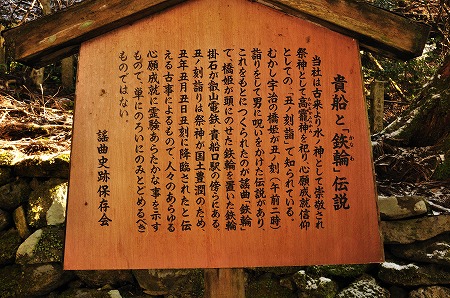 貴船と「鉄輪」伝説
かなわ
当社は古来より水の神として崇敬され
祭神として高龗神を祀り、心願成就信仰
としての「丑ノ刻詣」で知られている。
むかし宇治の橋姫が丑ノ刻(午前二時)
詣りをして男に呪いをかけた伝説があり、
これをもとにつくられたのが謡曲「鉄輪」
で、橋姫が頭にのせた鉄輪を置いた鉄輪
掛石が叡山電鉄貴船口駅の傍らにある。
丑ノ刻詣りは祭神が国土豊潤のため、
丑年丑月丑日丑刻に降臨されたと伝
える古事によるもので、人々のあらゆる
心願成就に霊験あらたかな事を示す
もので、単にのろいにのみとどめるべき
ものではない。
謡曲史跡保存会